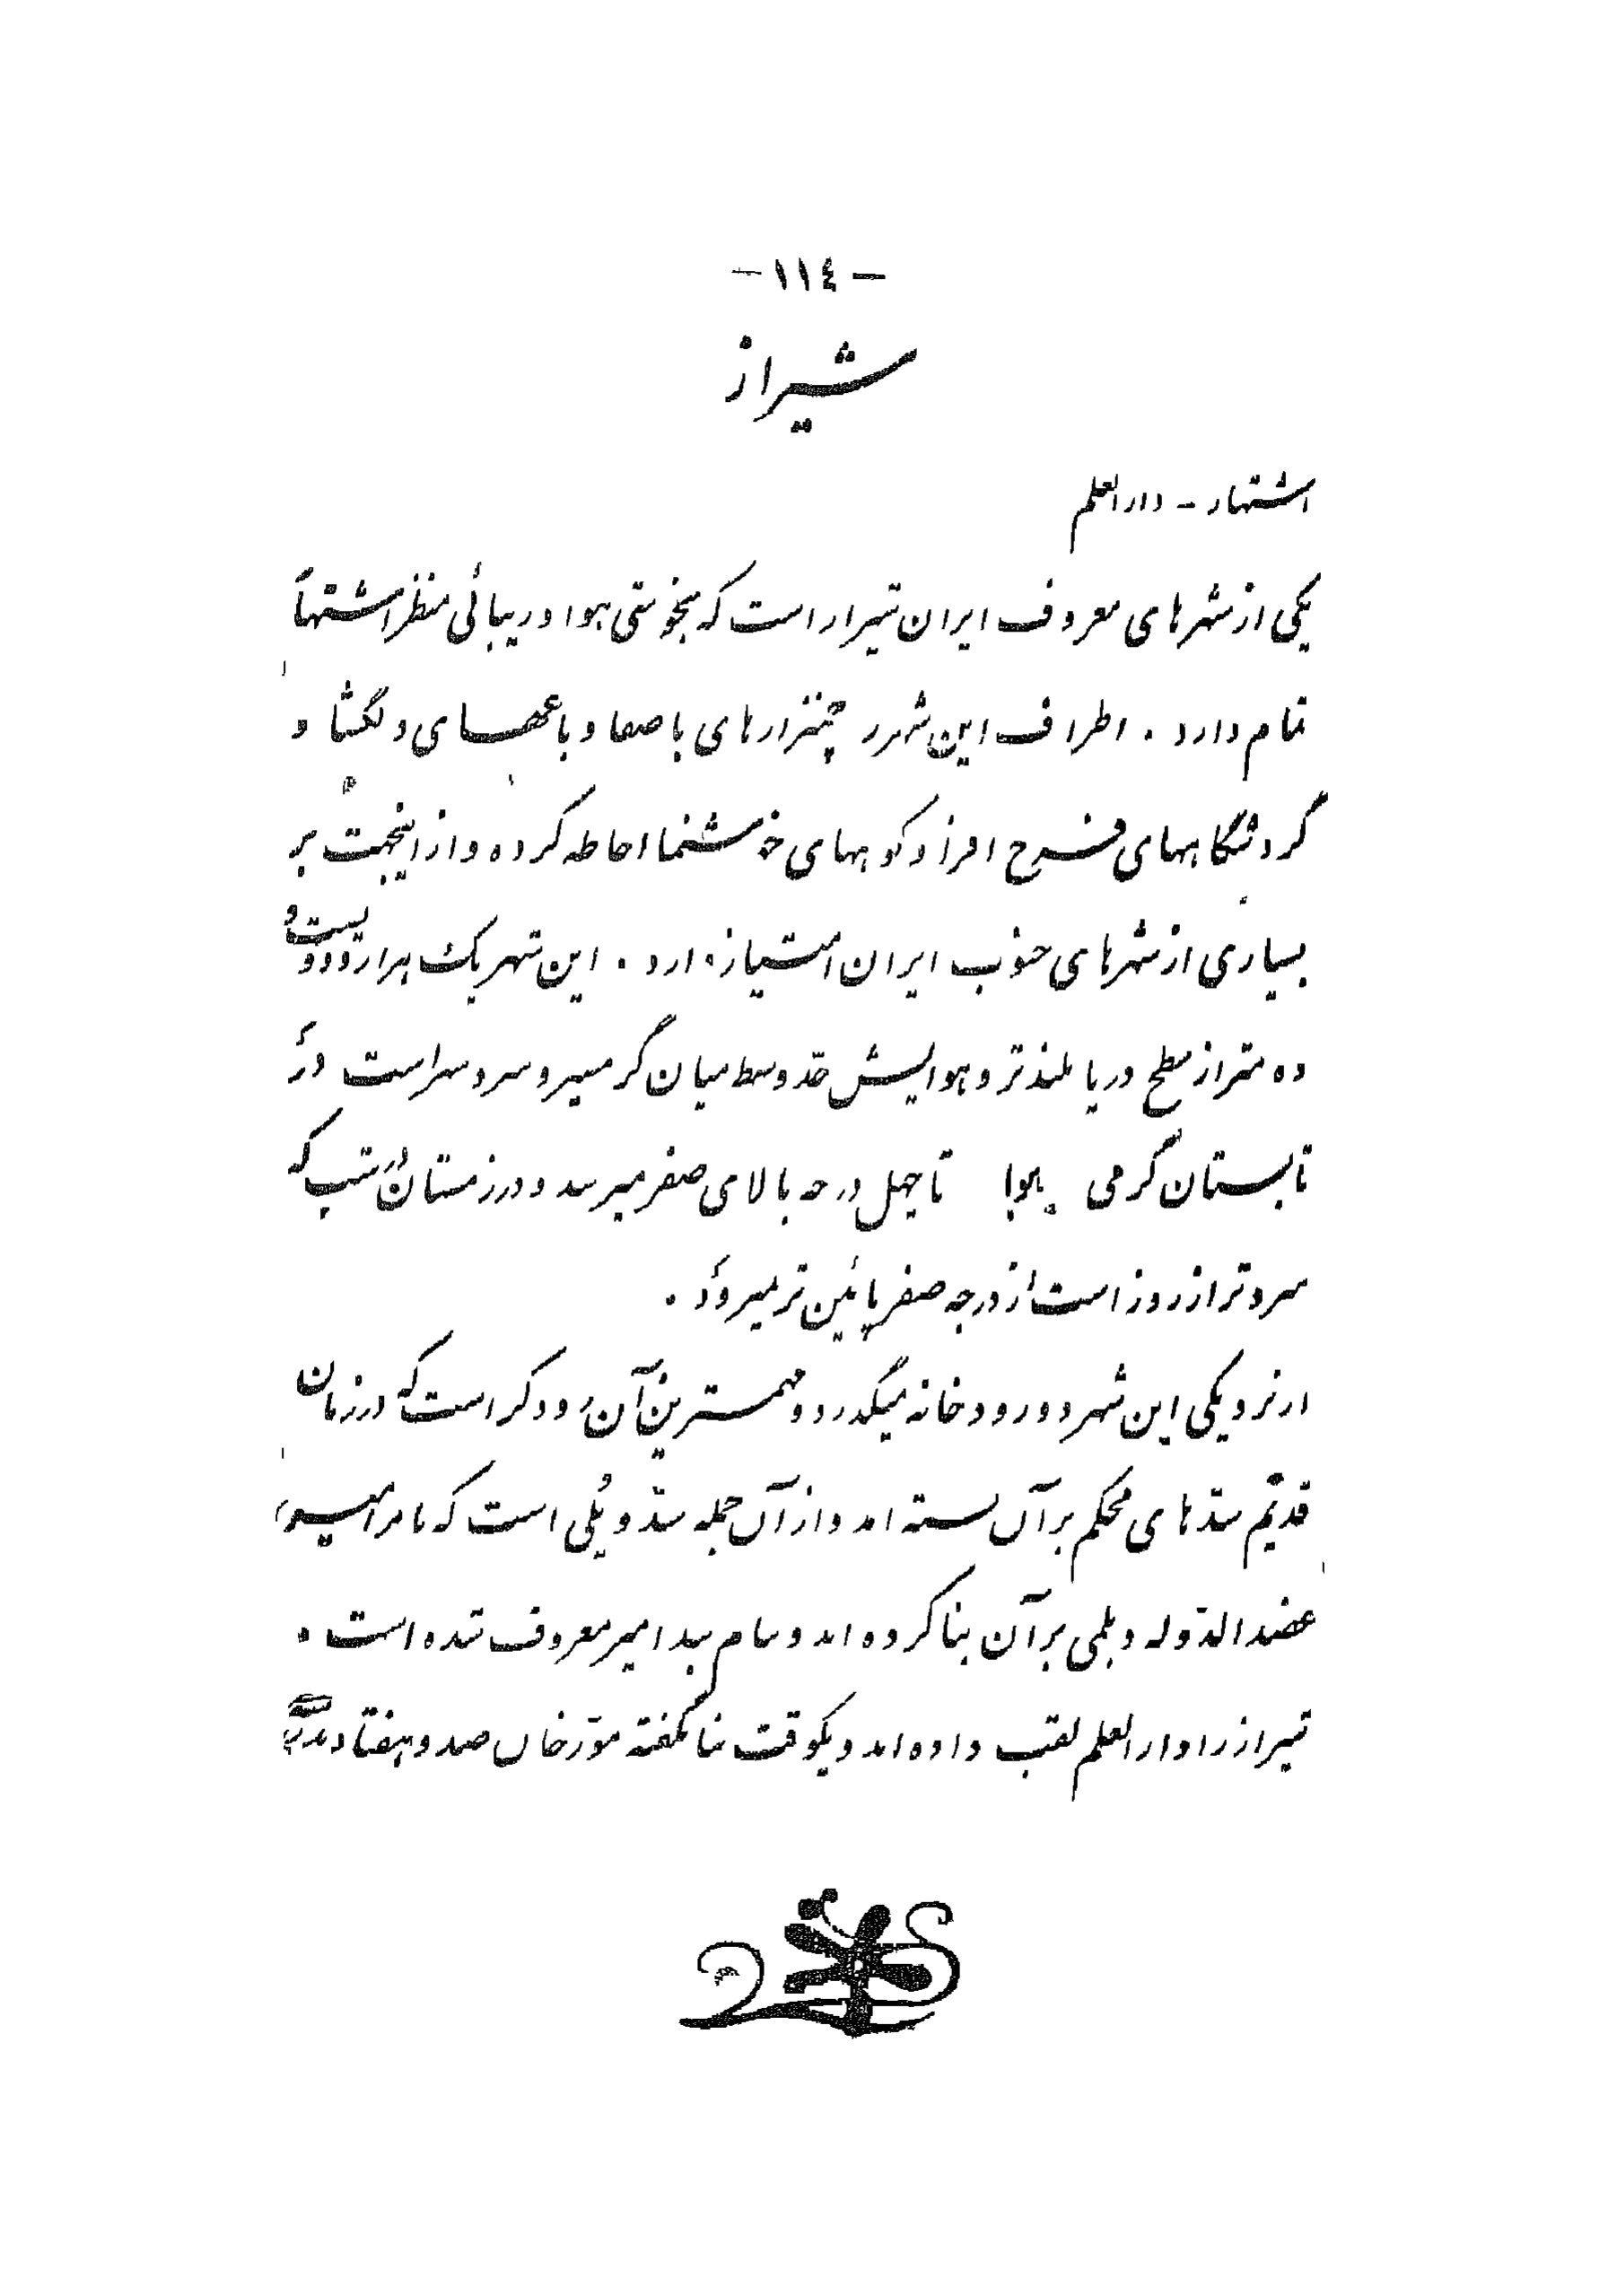 -١١٤-
شیراز
اشتهار - دارالعلم
یکی از شهرهای معروف ایران شیراز است که بخوشی هوا و زیبائی منظر اشتهار
تمام دارد . اطراف این شهر را چمنزارهای باصفا و باغهای دلگشا و
گردشگاههای فرح افزا و کوههای خوشنما احاطه کرده و از اینجهت بر
بسیاری از شهرهای جنوب ایران امتیاز دارد . این شهر یک هزار و دویست و
ده متر از سطح دریا بلندتر و هوایش حدّ وسط میان گرمسیر و سردسیر است در
تابستان گرمی هوا تا چهل درجه بالای صفر میرسد و در زمستان در شب که
سردتر از روز است از درجه صفر پائین تر میرود .
از نزدیکی این شهر دو رودخانه میگذرد و مهمترین آن رود کر است که در زمان
قدیم سدّهای محکم بر آن بسته اند و از آن جمله سدّ و پُلی است که بامر امیر
عضدالدّوله دیلمی بر آن بنا کرده اند و بنام بند امیر معروف شده است .
شیراز را دارالعلم لقب داده اند و یکوقت بنا بگفته مورّخان صد و هفتاد مدرسه